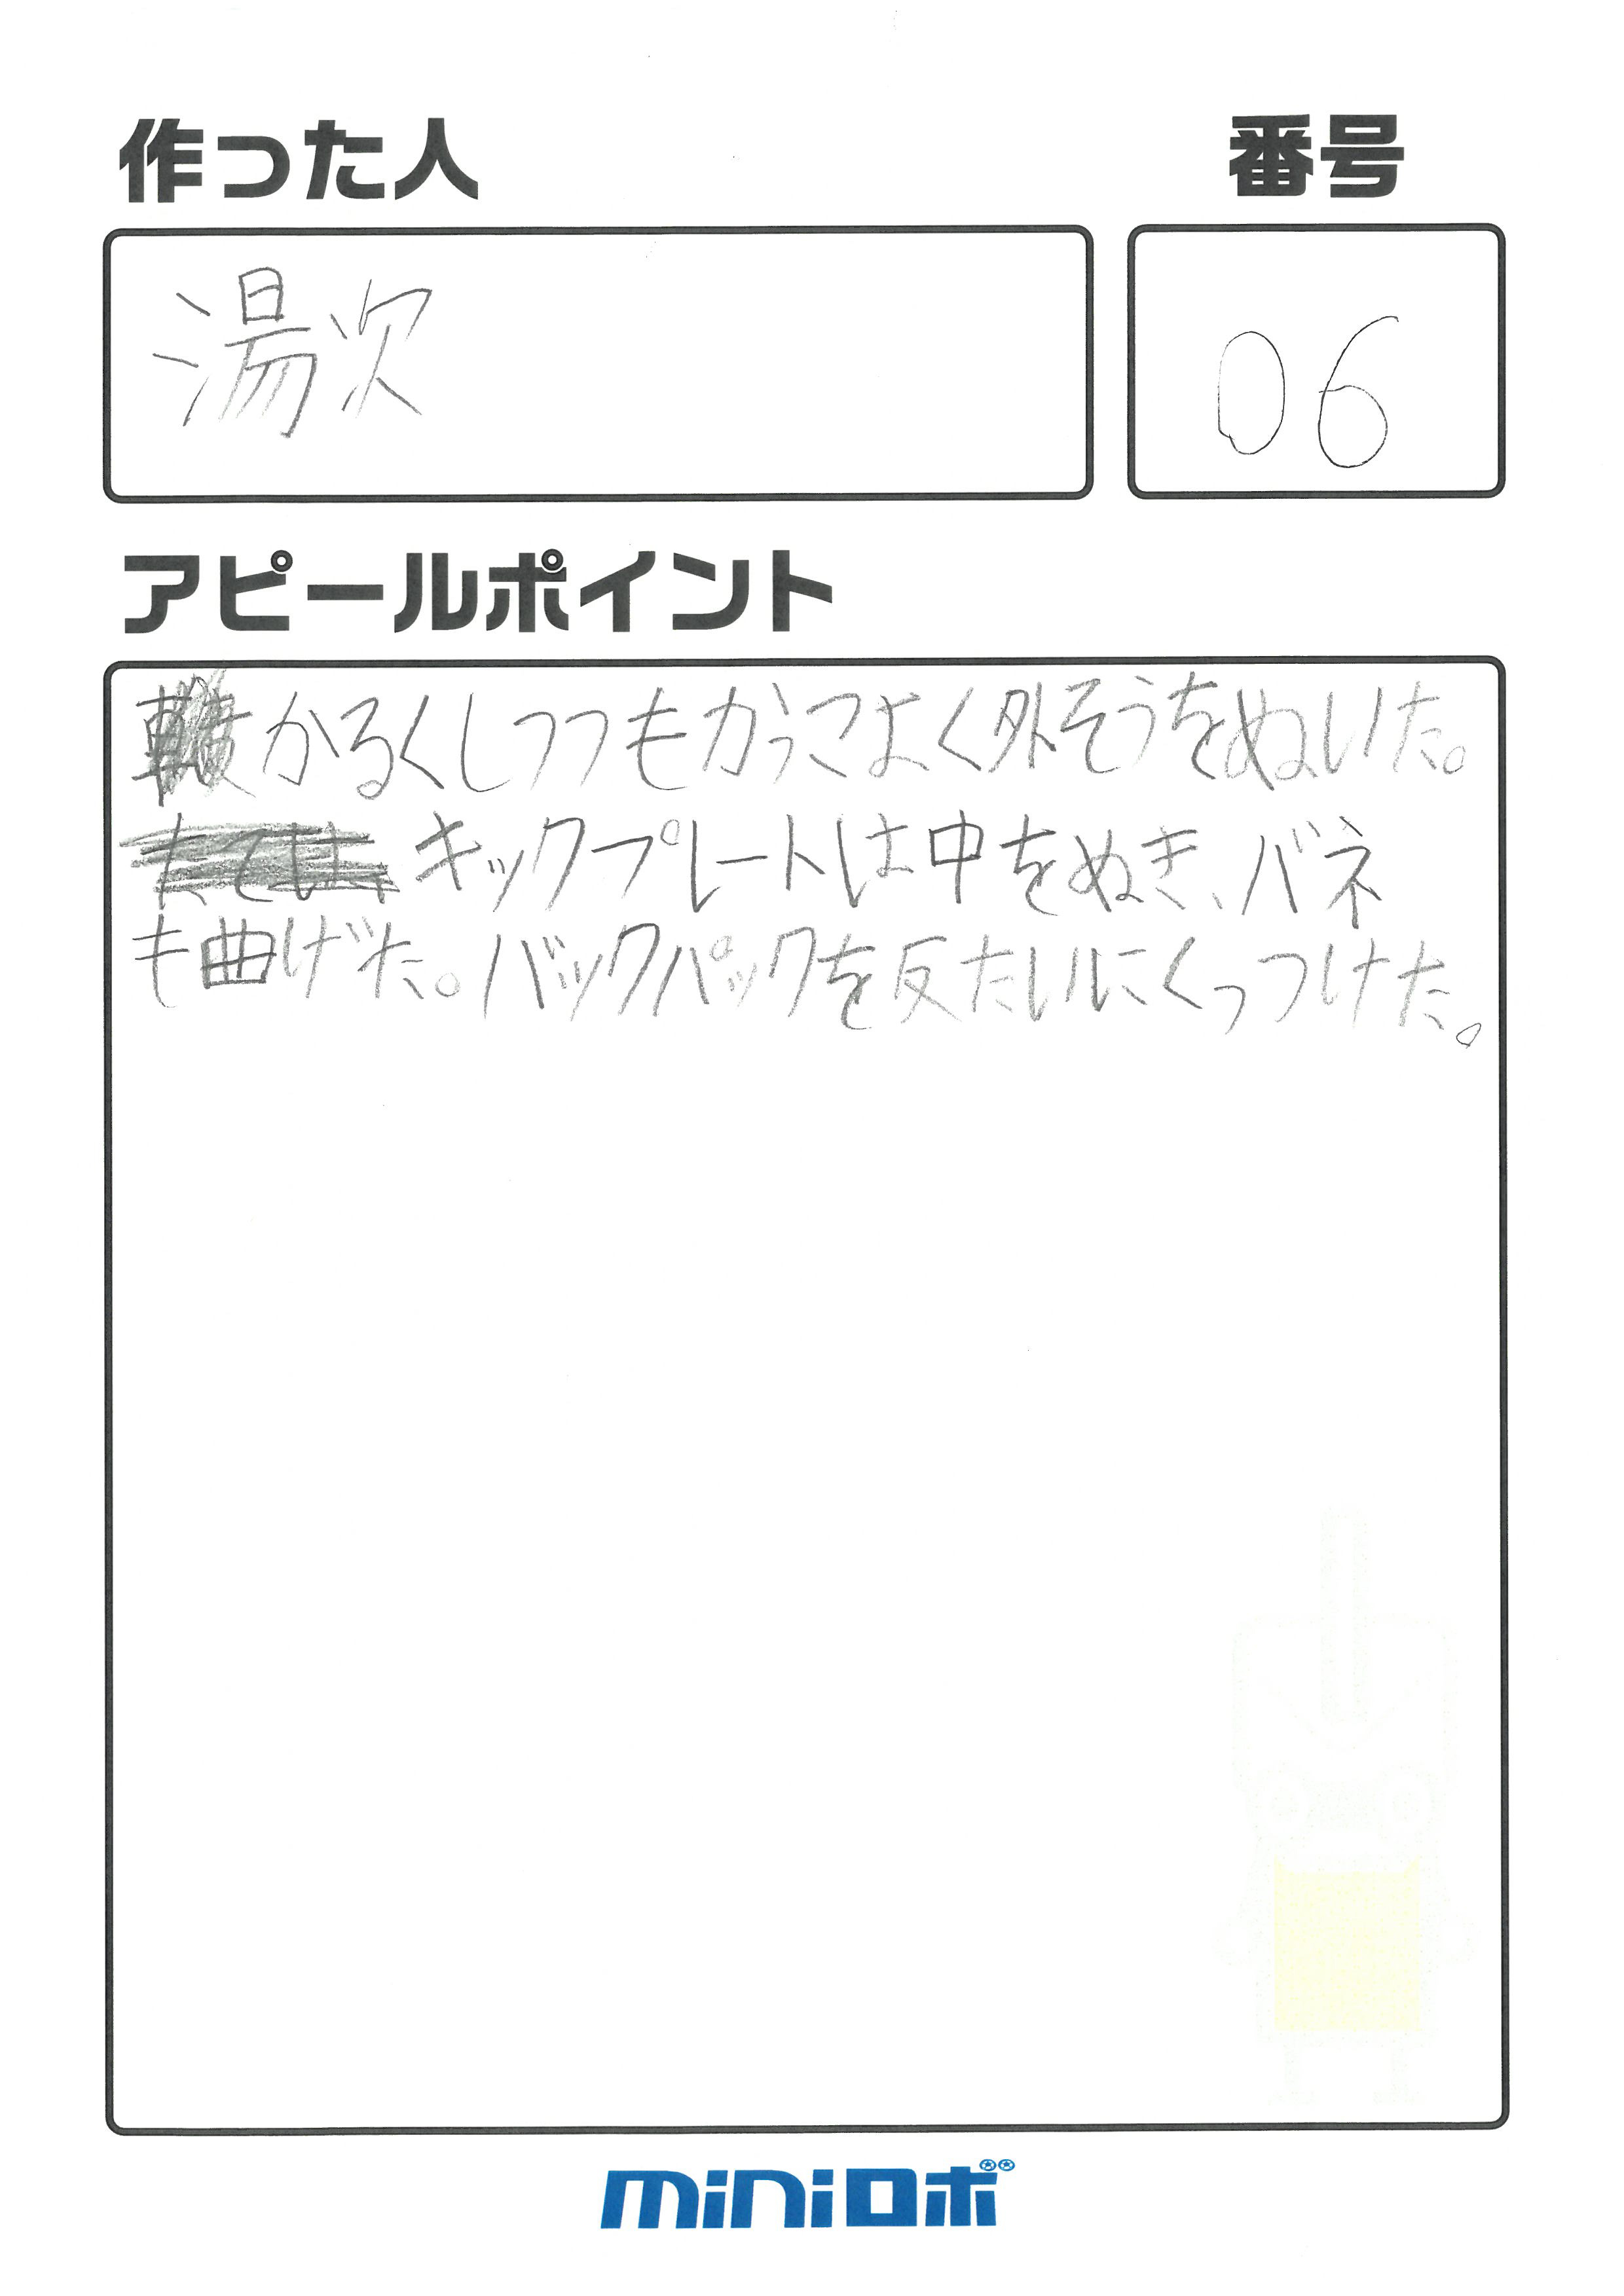 作った人
番号
湯次
06
アピールポイント
かるくしつつもかっこよく外そうをぬいた。
キックプレートは中をぬき、バネ
も曲げた。バックパックを反たいにくっつけた。
miniロボ